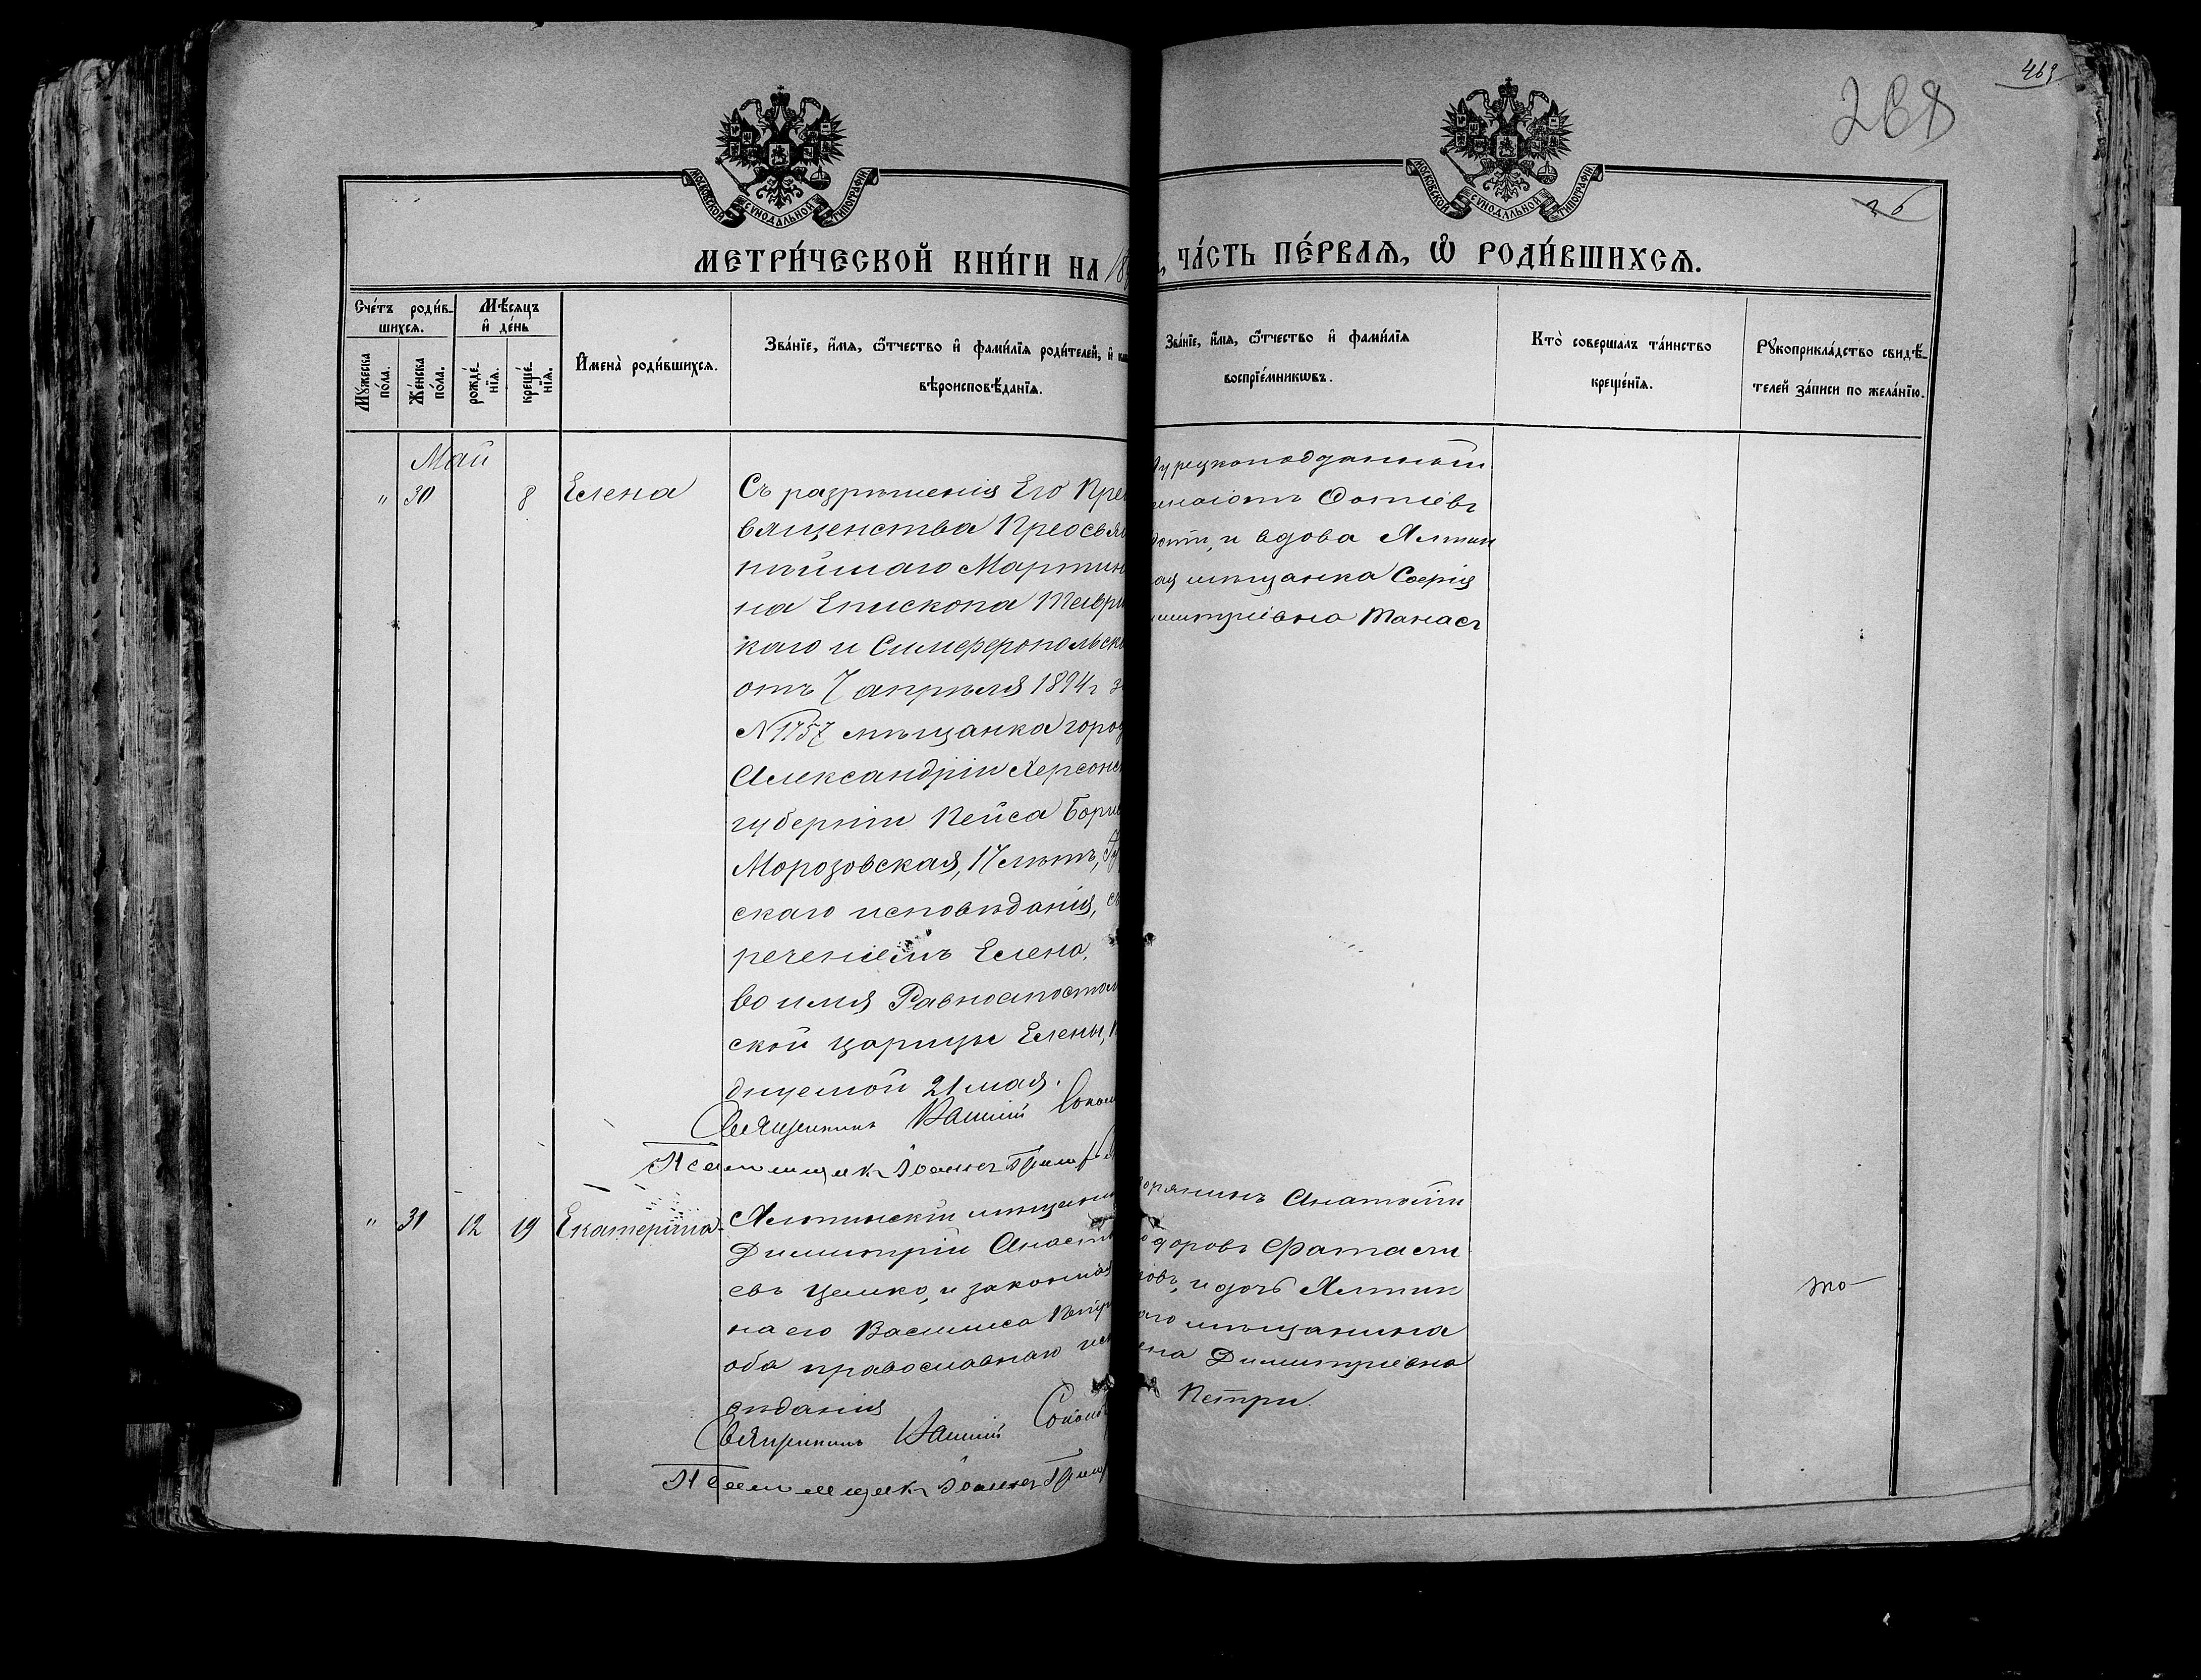 469
268
26
МОСКОВСКОЙ СѴНОДАЛЬНОЙ ТИПОГРАФІИ
МОСКОВСКОЙ СѴНОДАЛЬНОЙ ТИПОГРАФІИ
МЕТРИ́ЧЕСКОЙ КНИ́ГИ НА 18
ЧА́СТЬ ПЕ́РВАѦ, Ѽ РОДИ́ВШИХСѦ.
Сче́тъ роди́в-
шихсѧ.
Мѣ́сѧцъ
и҆ де́нь
Мꙋ́жеска
по́ла.
Же́нска
по́ла.
рожде́-
нїѧ.
креще́-
нїѧ.
И҆мена̀ роди́вшихсѧ.
Зва́нїе, и҆́мѧ, ѻ҆́тчество и҆ фами́лїѧ роди́телей, и҆
вѣроисповѣ́данїѧ.
Зва́нїе, и҆́мѧ, ѻ҆́тчество и҆ фами́лїѧ
воспрїе́мникѡвъ.
Кто̀ соверша́лъ та́инство
креще́нїѧ.
Рꙋкоприкла́дство свидѣ́-
телей за́писи по жела́нїю.
Май
" 30 8 Елена
Съ разрѣшенія Его Пре
вященства Преосвя
нѣйшаго Мартин
на Епископа Таври
каго и Симферопольск
отъ 7 апрѣля 1894 г з
№ 1757 мѣщанка горо
Александріи Херсонс
губерніи Пейса Бори
Морозовская, 17 лѣтъ,
скаго исповѣданія, съ
реченіемъ Елена,
во имя Равноапостол
ской царицы Елены,
днуемой 21 мая.
Священникъ Соко
Псаломщикъ Іоаннъ
урецкоподданный
Фотіевъ
и вдова Ялтин
ая мѣщанка Софія
имитріевна Танасъ
" 31 12 19 Екатерина
Ялтинскій мѣщани
Димитрій Анаст
евъ Цемко, и законная
на его Василиса Петр
оба православнаго исп
ѣданія
Священникъ Соколо
Псаломщикъ Іоаннъ
орянинъ Анатолій
одоровъ Фатасли
ровъ, и дочь Ялтин
аго мѣщанина
ена Димитріевна
Петри.